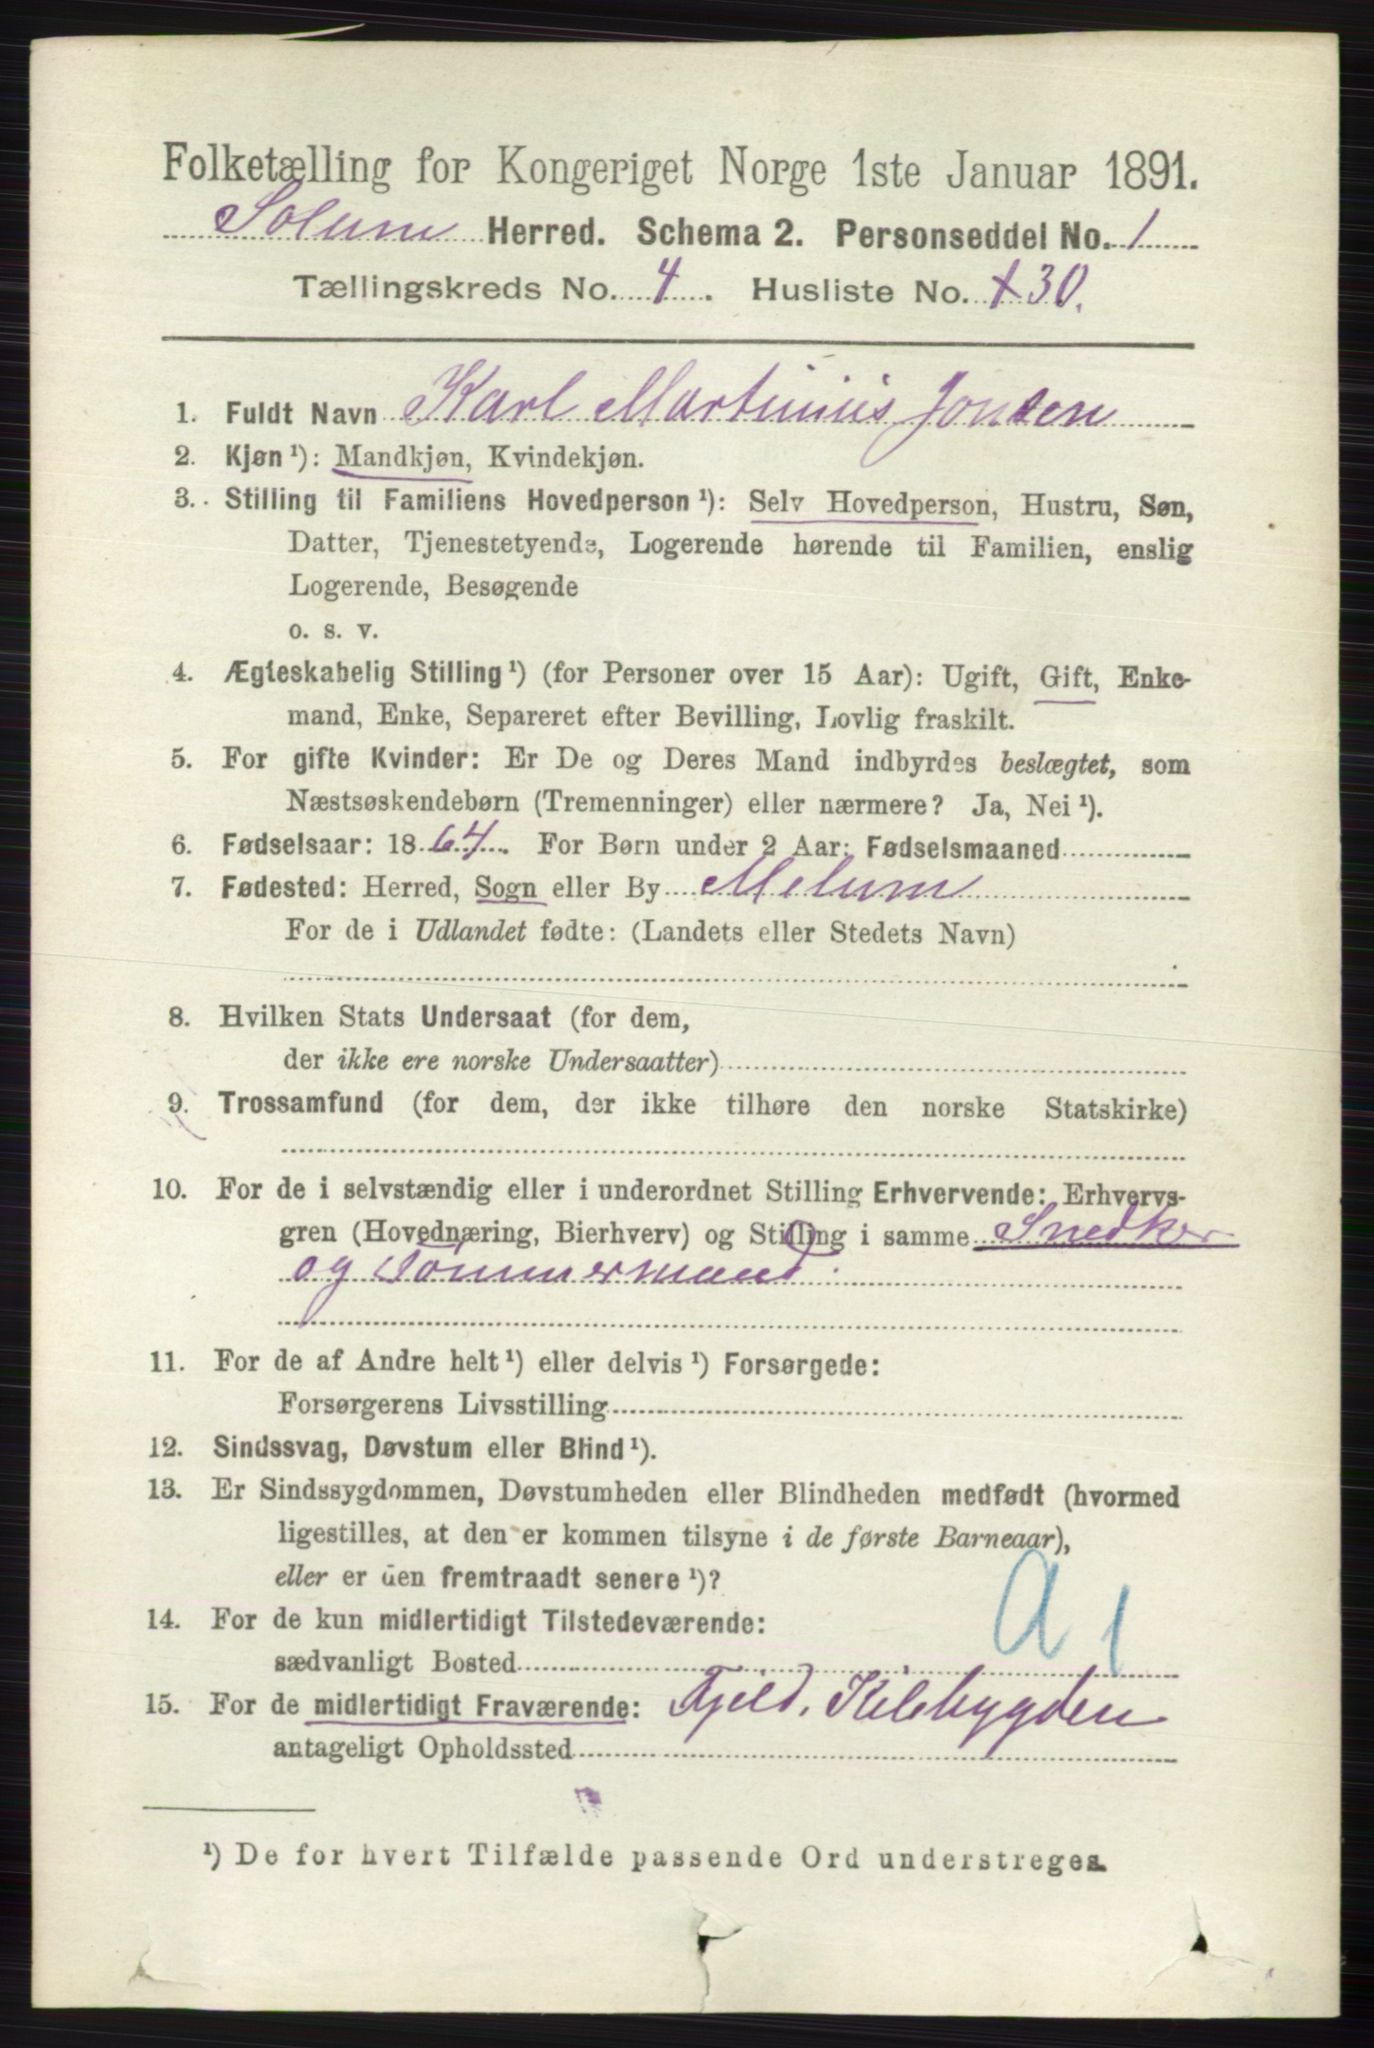 Folketælling for Kongeriget Norge 1ste Januar 1891.
Solum Herred. Schema 2. Personseddel No. 1
Tællingskreds No. 4. Husliste No. 130.
1. Fuldt Navn Karl Martinius Jonsen
2. Kjøn ¹): Mandkjøn, Kvindekjøn.
3. Stilling til Familiens Hovedperson ¹): Selv Hovedperson, Hustru, Søn,
Datter, Tjenestetyende, Logerende hørende til Familien, enslig
Logerende, Besøgende
o. s. v.
4. Ægteskabelig Stilling ¹) (for Personer over 15 Aar): Ugift, Gift, Enke-
mand, Enke, Separeret efter Bevilling, Lovlig fraskilt.
5. For gifte Kvinder: Er De og Deres Mand indbyrdes beslægtet, som
Næstsøskendebørn (Tremenninger) eller nærmere? Ja, Nei ¹).
6. Fødselsaar: 1864. For Børn under 2 Aar: Fødselsmaaned
7. Fødested: Herred, Sogn eller By Melum
For de i Udlandet fødte: (Landets eller Stedets Navn)
8. Hvilken Stats Undersaat (for dem,
der ikke ere norske Undersaatter)
9. Trossamfund (for dem, der ikke tilhøre den norske Statskirke)
10. For de i selvstændig eller i underordnet Stilling Erhvervende: Erhvervs-
gren (Hovednæring, Bierhverv) og Stilling i samme Snedker
og Tømmermand.
11. For de af Andre helt ¹) eller delvis ¹) Forsørgede:
Forsørgerens Livsstilling
12. Sindssvag, Døvstum eller Blind ¹).
13. Er Sindssygdommen, Døvstumheden eller Blindheden medfødt (hvormed
ligestilles, at den er kommen tilsyne i de første Barneaar),
eller er den fremtraadt senere ¹)?
a 1
14. For de kun midlertidigt Tilstedeværende:
sædvanligt Bosted
15. For de midlertidigt Fraværende: Fjeld, Kilebygden
antageligt Opholdssted
¹) De for hvert Tilfælde passende Ord understreges.